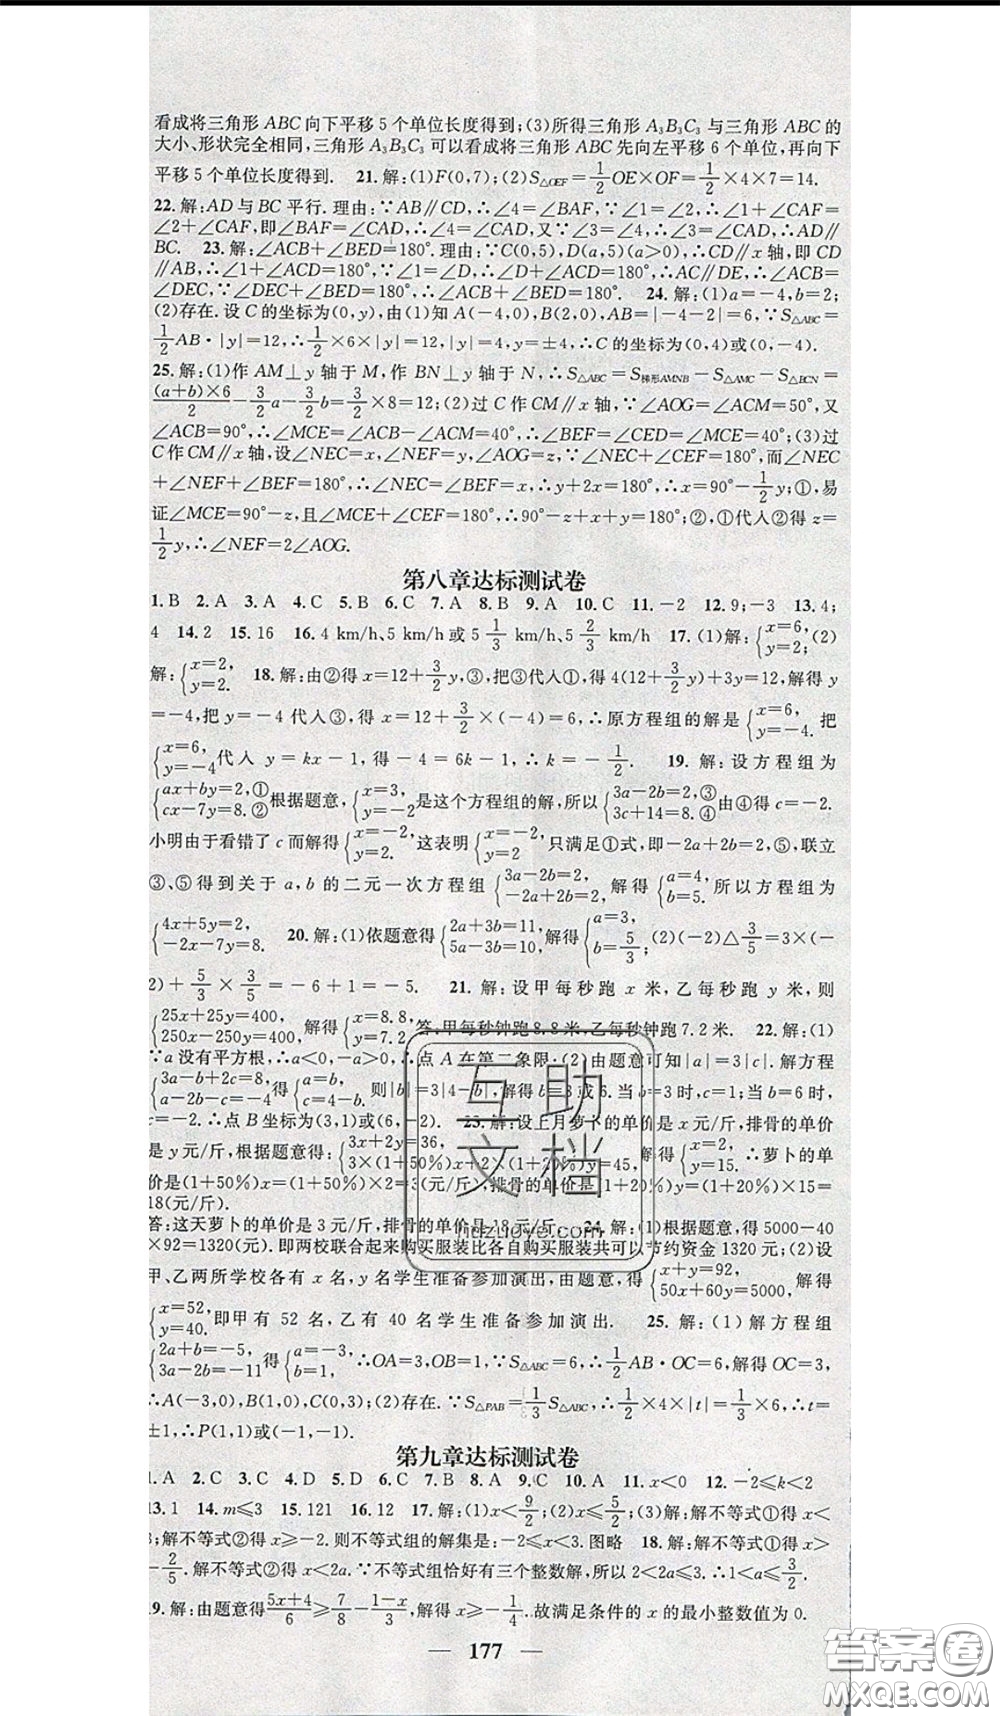 看成将三角形 ABC 向下平移 5 个单位长度得到;(3)所得三角形 A₃B₃C₃ 与三角形 ABC 的
大小、形状完全相同,三角形 A₃B₃C₃ 可以看成将三角形 ABC 先向左平移 6 个单位,再向下
平移 5 个单位长度得到. 21.解:(1)F(0,7);(2)S△OEF=1/2 OE×OF=1/2×4×7=14.
22.解:AD 与 BC 平行.理由:∵AB∥CD,∴∠4=∠BAF,∵∠1=∠2,∴∠1+∠CAF=
∠2+∠CAF,即∠BAF=∠CAD,∴∠4=∠CAD,又∵∠3=∠4,∴∠3=∠CAD,∴AD∥
BC. 23.解:∠ACB+∠BED=180°.理由:∵C(0,5),D(a,5)(a>0),∴CD∥x 轴,即 CD
∥AB,∴∠1+∠ACD=180°,∵∠1=∠D,∴∠D+∠ACD=180°,∴AC∥DE,∴∠ACB=
∠DEC,∵∠DEC+∠BED=180°,∴∠ACB+∠BED=180°. 24.解:(1)a=-4,b=2;
(2)存在.设 C 的坐标为(0,y),由(1)知 A(-4,0),B(2,0),AB=|-4-2|=6,∵S△ABC=
1/2 AB·|y|=12,∴1/2×6×|y|=12,∴|y|=4,y=±4,∴C 的坐标为(0,4)或(0,-4).
25.解:(1)作 AM⊥y 轴于 M,作 BN⊥y 轴于 N,∴S△ABC=S梯形AMNB-S△AMC-S△BCN=
(a+b)×6/2-3/2 a-3/2 b=3/2×8=12;(2)过 C 作 CM∥x 轴,∵∠AOG=∠ACM=50°,又
∠ACB=90°,∴∠MCE=∠ACB-∠ACM=40°,∴∠BEF=∠CED=∠MCE=40°;(3)过
C 作 CM∥x 轴,设∠NEC=x,∠NEF=y,∠AOG=z,∵∠NEC+∠CEF=180°,而∠NEC
+∠NEF+∠BEF=180°,∴∠NEC=∠BEF=x,∴y+2x=180°,∴x=90°-1/2 y;①,易
证∠MCE=90°-z,且∠MCE+∠CEF=180°,∴90°-z+x+y=180°;②,①代入②得 z=
1/2 y,∴∠NEF=2∠AOG.
第八章达标测试卷
1.B 2.A 3.A 4.C 5.B 6.C 7.A 8.B 9.A 10.C 11.-2 12.9;-3 13.4;
4 14.2 15.16 16.4 km/h、5 km/h 或 5 1/3 km/h、5 2/3 km/h 17.(1)解:{x=6, y=2;(2)
解:{x=2, y=2. 18.解:由②得 x=12+3/2 y,③,把③代入①,得 4(12+3/2 y)+3y=12,解得 y
=-4,把 y=-4 代入③,得 x=12+3/2×(-4)=6,∴原方程组的解是{x=6, y=-4. 把
{x=6, y=-4 代入 y=kx-1,得 -4=6k-1,∴k=-1/2. 19.解:设方程组为
{ax+by=2,① cx-7y=8.② 根据题意,{x=3, y=-2 是这个方程组的解,所以{3a-2b=2,③ 3c+14=8.④ 由④得 c=-2.
小明由于看错了 c 而解得{x=-2, y=2. 这表明{x=-2, y=2 只满足①式,即-2a+2b=2,⑤,联立
③、⑤得到关于 a,b 的二元一次方程组{3a-2b=2, -2a+2b=2, 解得{a=4, b=5. 所以方程组为
{4x+5y=2, -2x-7y=8. 20.解:(1)依题意得{2a+3b=11, 5a-3b=10, 解得{a=3, b=5/3;(2)(-2)△3/5=3×(-
2)+5/3×3/5=-6+1=-5. 21.解:设甲每秒跑 x 米,乙每秒跑 y 米,则
{25x+25y=400, 250x-250y=400, 解得{x=8.8, y=7.2. 答:甲每秒钟跑 8.8 米,乙每秒钟跑 7.2 米. 22.解:(1)
∵a 没有平方根,∴a<0,-a>0,∴点 A 在第二象限;(2)由题意可知|a|=3|c|.解方程
{3a-b+2c=8, a-2b-c=-4 得{a=b, c=4-b. 则|b|=3|4-b|,解得 b=3 或 6.当 b=3 时,c=1;当 b=6 时,
c=-2.∴点 B 坐标为(3,1)或(6,-2). 23.解:设上月萝卜的单价是 x 元/斤,排骨的单价
是 y 元/斤,根据题意得:{3x+2y=36, 3×(1+50%)x+2×(1+20%)y=45, 解得{x=2, y=15. ∴萝卜的单
价是(1+50%)x=(1+50%)×2=3(元/斤),排骨的单价是(1+20%)y=(1+20%)×15=
18(元/斤).
答:这天萝卜的单价是 3 元/斤,排骨的单价是 18 元/斤. 24.解:(1)根据题意,得 5000-40
×92=1320(元).即两校联合起来购买服装比各自购买服装共可以节约资金 1320 元;(2)设
甲、乙两所学校各有 x 名,y 名学生准备参加演出,由题意,得{x+y=92, 50x+60y=5000, 解得
{x=52, y=40. 即甲有 52 名,乙有 40 名学生准备参加演出. 25.解:(1)解方程组
{2a+b=-5, 3a-2b=-11 得{a=-3, b=1, ∴OA=3,OB=1,∵S△ABC=6,∴1/2 AB·OC=6,解得 OC=3,
∴A(-3,0),B(1,0),C(0,3);(2)存在.∵S△PAB=1/3 S△ABC,∴1/2×4×|t|=1/3×6,∴t=
±1,∴P(1,1)或(1,-1).
第九章达标测试卷
1.A 2.C 3.C 4.D 5.D 6.C 7.B 8.A 9.C 10.A 11.x<0 12.-2≤k<2
13.1 14.m≤3 15.121 16.12 17.解:(1)x<9/2;(2)x≤5/2;(3)解:解不等式①得 x<
3;解不等式②得 x≥-2.则不等式组的解集是:-2≤x<3.图略 18.解:解不等式①得 x>
-2/5.解不等式②得 x<2a.∵不等式组恰好有三个整数解,所以 2<2a≤3.∴1<a≤3/2.
19.解:由题意得 5x+4/6≥7/8-1-x/3,解得 x≥-1/4.故满足条件的 x 的最小整数值为 0.
— 177 —
互助
文档
huzuoye.com
答案卷
MXQE.COM